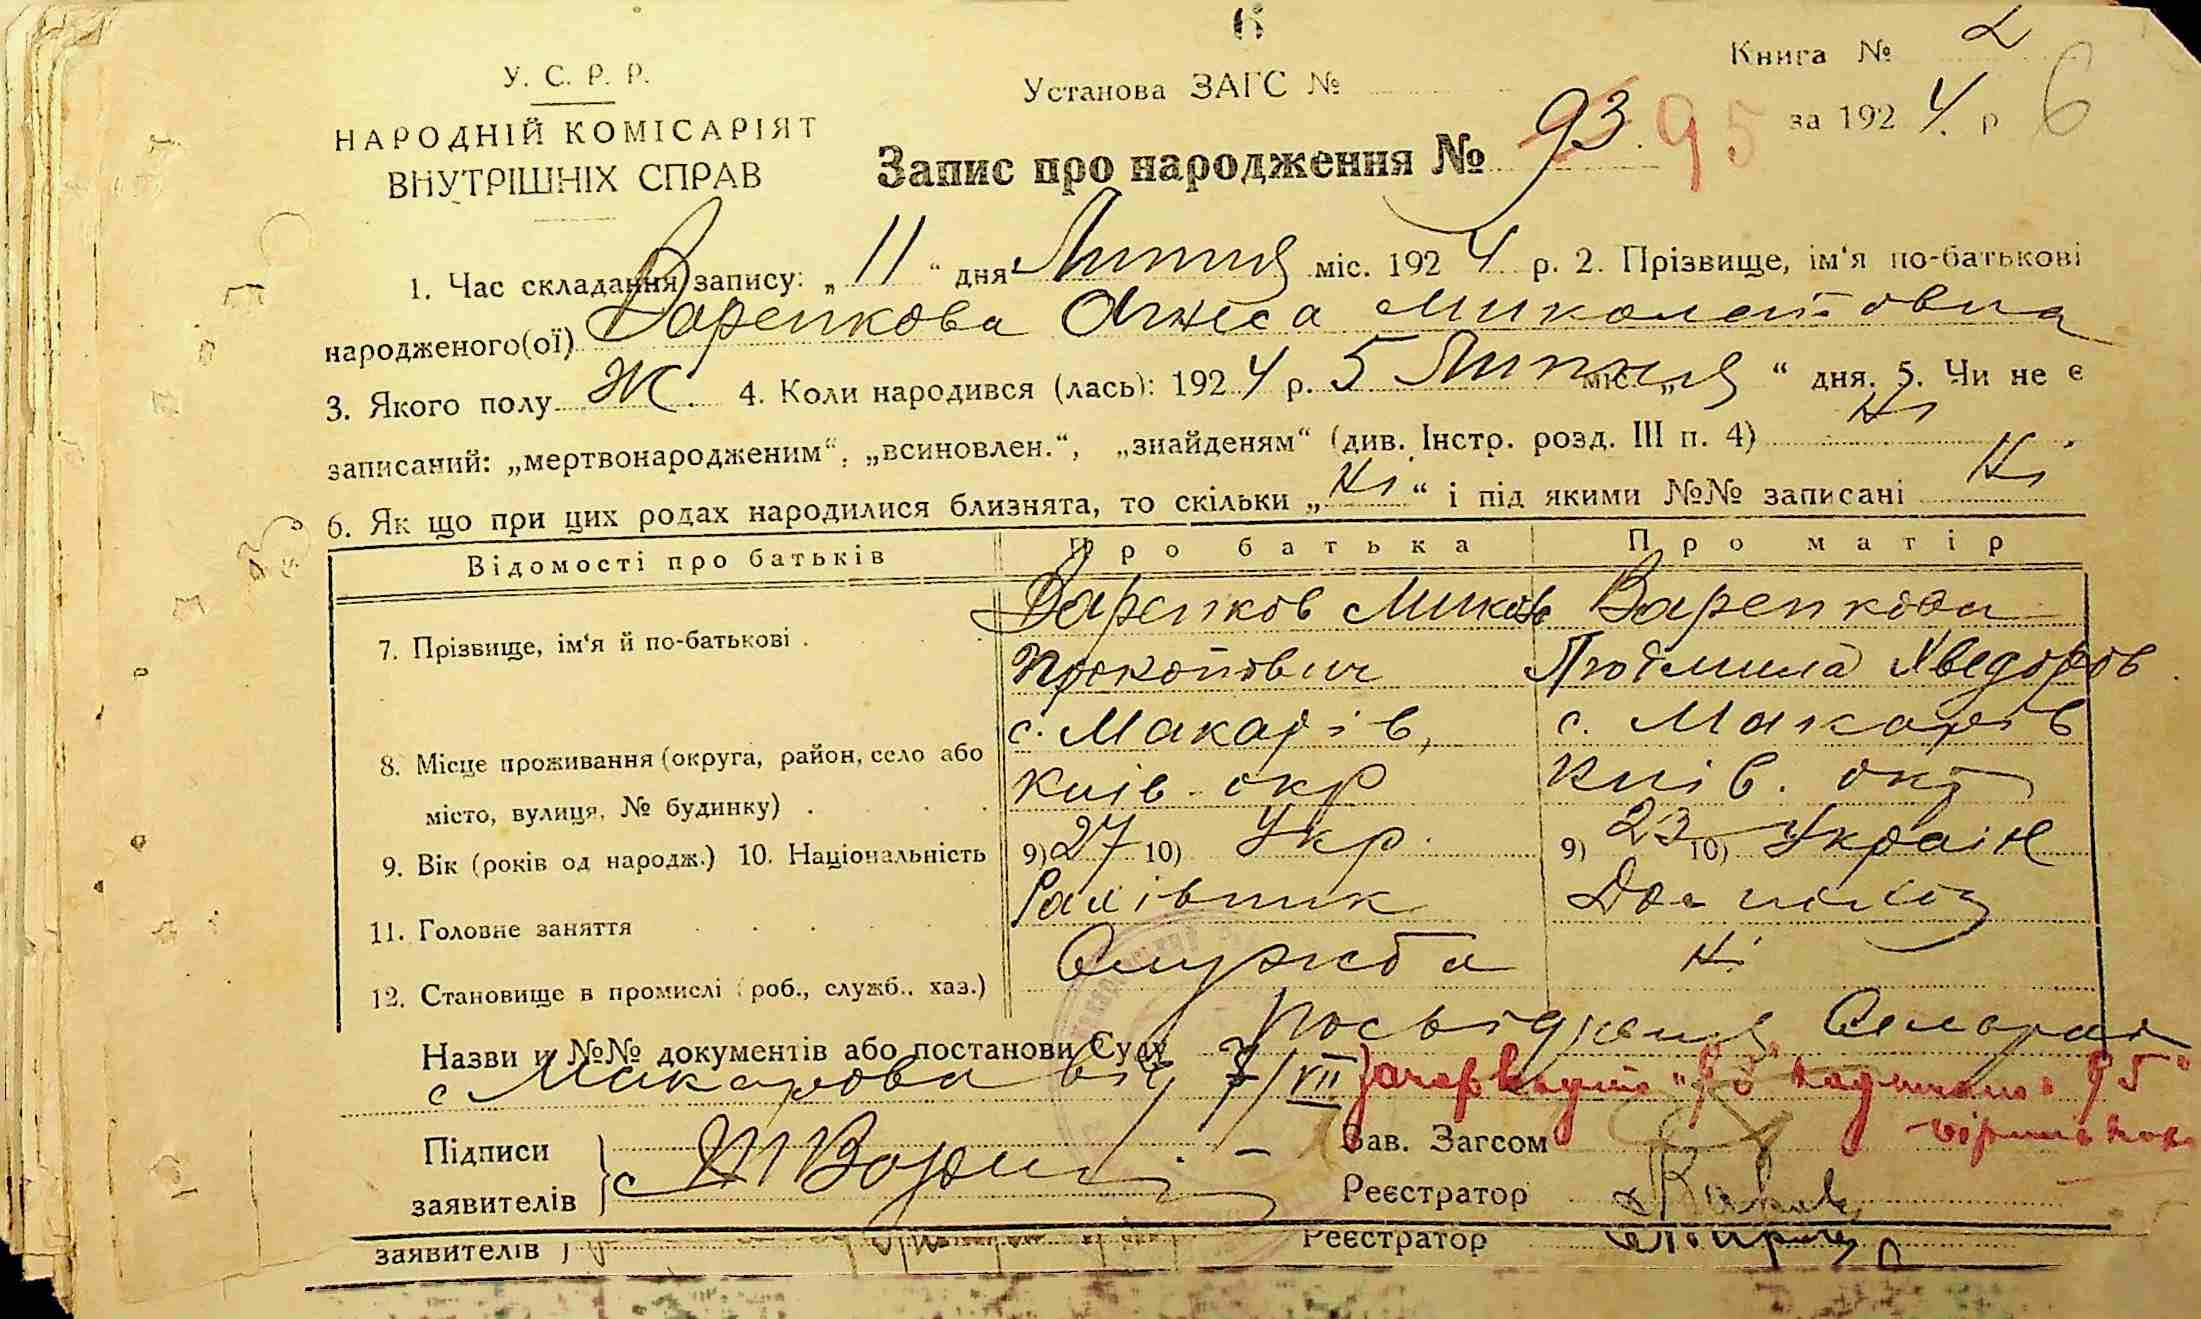 6
Книга № 2
У. С. Р. Р.
Установа ЗАГС №
за 1924 р 6
НАРОДНІЙ КОМІСАРІЯТ
ВНУТРІШНІХ СПРАВ
Запис про народження № 93. 95
1. Час складання запису: „11“ дня Липня міс. 1924 р. 2. Прізвище, ім‘я по-батькові
народженого(ої) Варепкова Миколаїовна
3. Якого полу Ж. 4. Коли народився (лась): 1924 р. 5 Липня міс. „ “ дня. 5. Чи не є
записаний: „мертвонародженим“, „всиновлен.“, „знайденям“ (див. Інстр. розд. III п. 4) Ні
6. Як що при цих родах народилися близнята, то скільки „Ні“ і під якими №№ записані Ні
Відомості про батьків Про батька Про матір
7. Прізвище, ім‘я й по-батькові . Варепков Микола Варепкова
Прокопович Людмила Хведоров
8. Місце проживання (округа, район, село або с. Макарів, с. Макарів
місто, вулиця, № будинку) . Київ. окр Київ. окр
9. Вік (років од народж.) 10. Національність 9) 27 10) Укр. 9) 23 10) Україн
11. Головне заняття
12. Становище в промислі (роб., служб., хаз.) Служба Ні
Назви и №№ документів або постанови Суду Посвідченя Сельради
с Макарова від 7/VII Зачеркнуто "93" надписано "95"
Підписи
заявителів
Зав. Загсом
Реєстратор
заявителів
Реєстратор